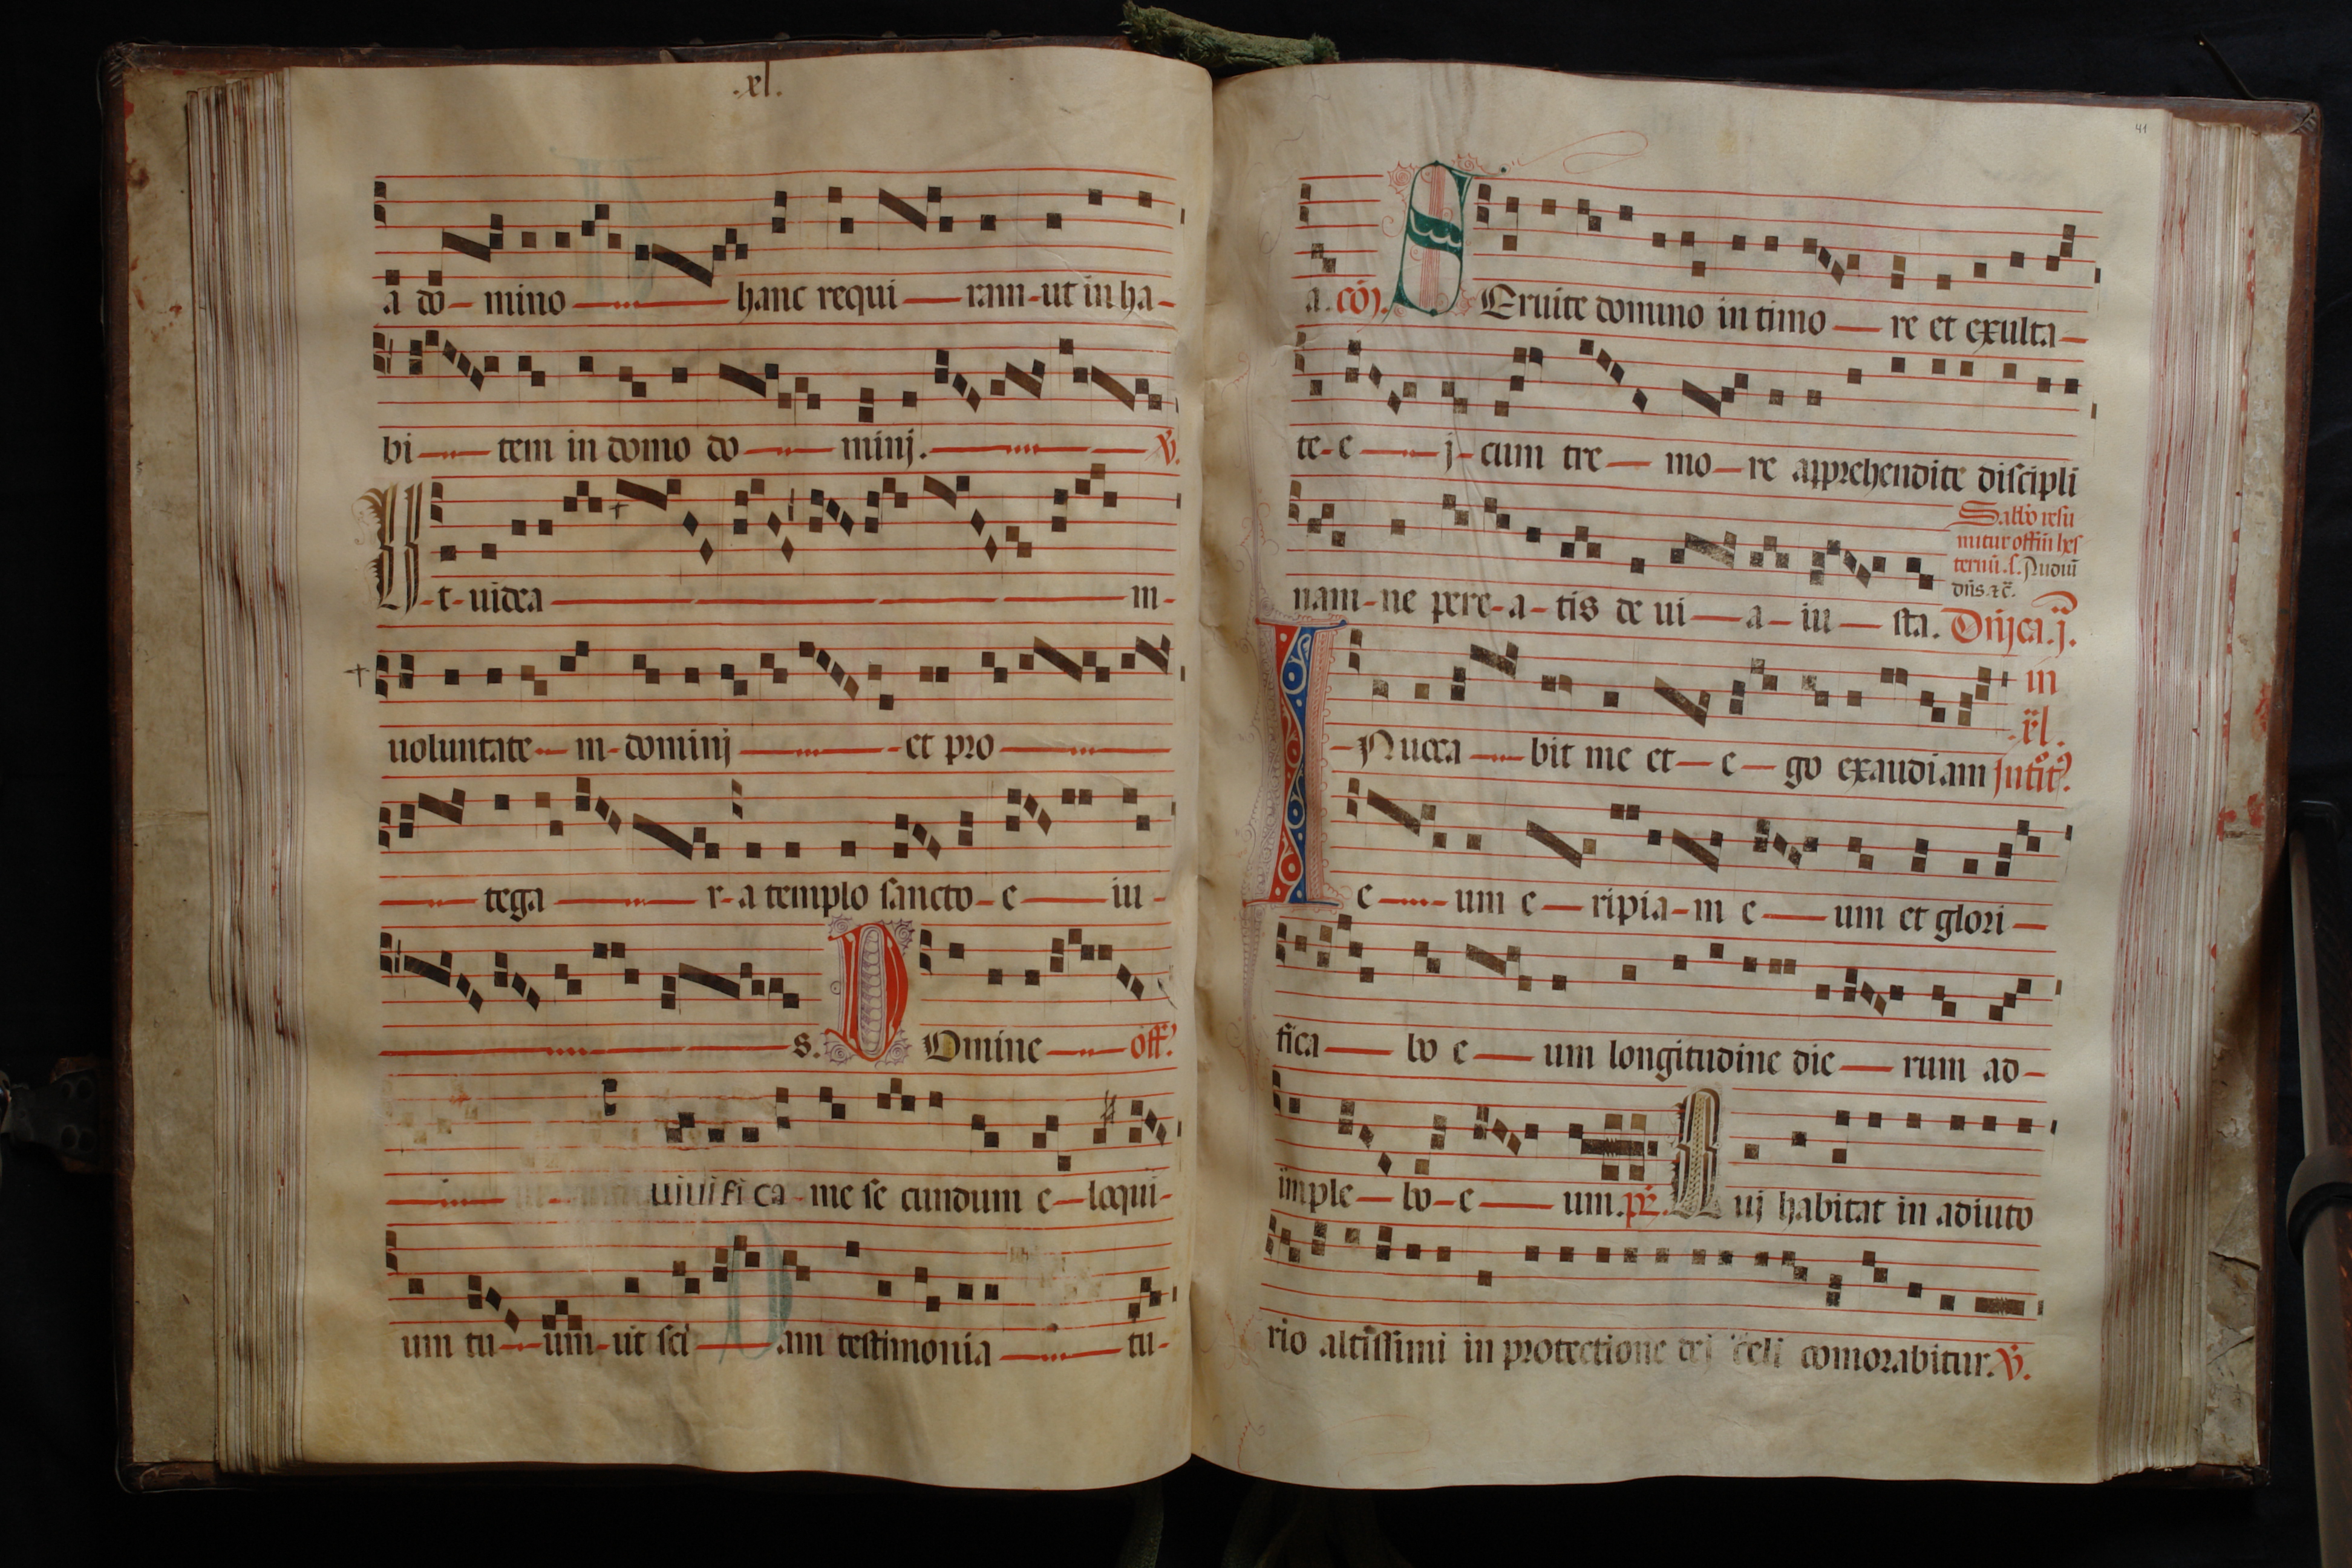 .xl.
a do- mino hanc requi ram-ut in ha-
bi tem in domo do minj. ℣.
Ut-uidea m-
uoluntate-m-dominj et pro
tega r-a templo sancto-e iu-
s. Domine off.
uiuifica-me se cundum e-loqui-
um tu-um-ut sci am testimonia tu-
41
a. co. SEruite domino in timo re et exulta-
te-e j-cum tre mo-re apprehendite discipli
Sabbo resu
mitur offiu hes
ternu. s. Audiuit
dns. &c.
nam-ne pere-a-tis de ui a-iu sta. Dnica. j.
in
.xl.
INuoca bit me et-e-go exaudiam Intit.
e-um e ripia-m e um et glori
fica bo e um longitudine die rum ad-
imple bo-e um. ps. Quj habitat in adiuto
rio altissimi in protectione dej celi comorabitur. ℣.